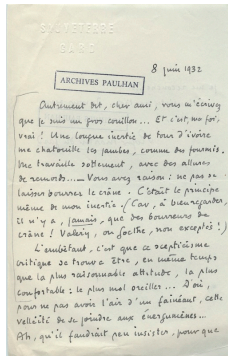 SAUVETERRE
GARD
8 juin 1932
ARCHIVES PAULHAN
Autrement dit, cher ami, vous m'écrivez
que je suis un gros couillon... Et c'est, ma foi,
vrai ! Une longue inertie de tour d'ivoire
me chatouille les jambes, comme des fourmis.
Me travaille sottement, avec des allures
de remords..... Vous avez raison : ne pas se
laisser bourrer le crâne. C'était le principe
même de mon inertie. (Car, à bien regarder,
il n'y a, jamais, que des bourreurs de
crâne ! Valéry, ou Goethe, non exceptés !)
L'embêtant, c'est que ce scepticisme
critique se trouve être, en même temps
que la plus raisonnable attitude, la plus
confortable : le plus mol oreiller... D'où,
pour ne pas avoir l'air d'un fainéant, cette
velléité de se joindre aux énergumènes...
Ah, qu'il faudrait peu insister, pour que